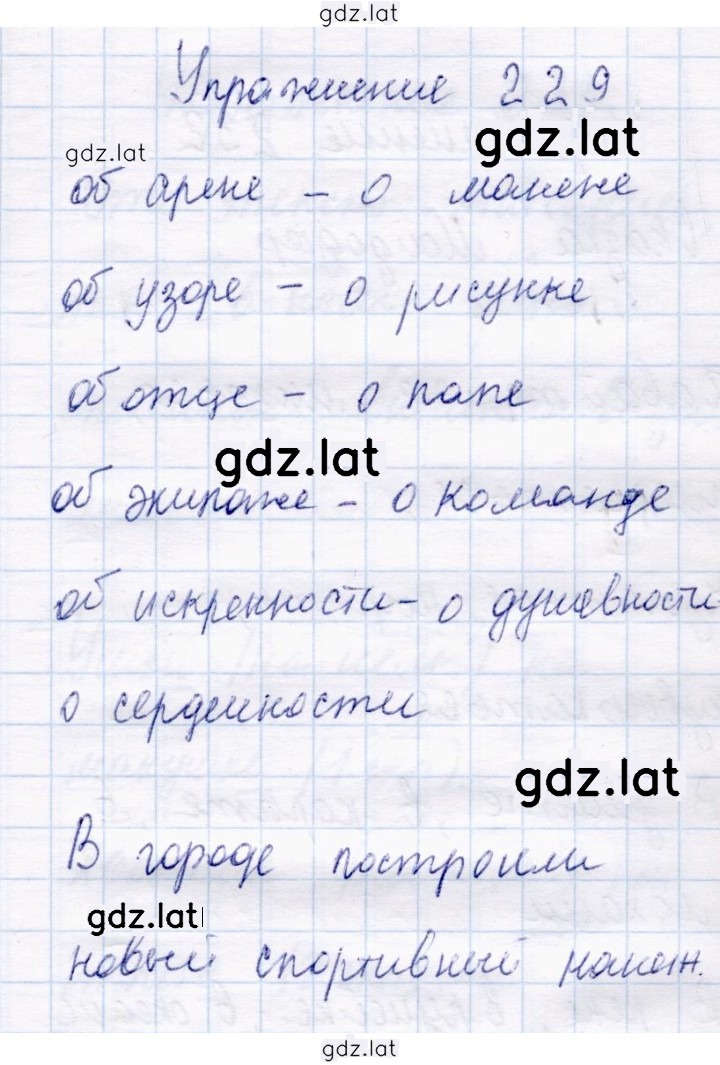 gdz.lat
Упражнение 229
gdz.lat
gdz.lat
об арене – о манеже
об узоре – о рисунке
об отце – о папе
gdz.lat
об экипаже – о команде
об искренности – о душевности
о сердечности
gdz.lat
В городе построили
gdz.lat
новый спортивный манеж.
gdz.lat